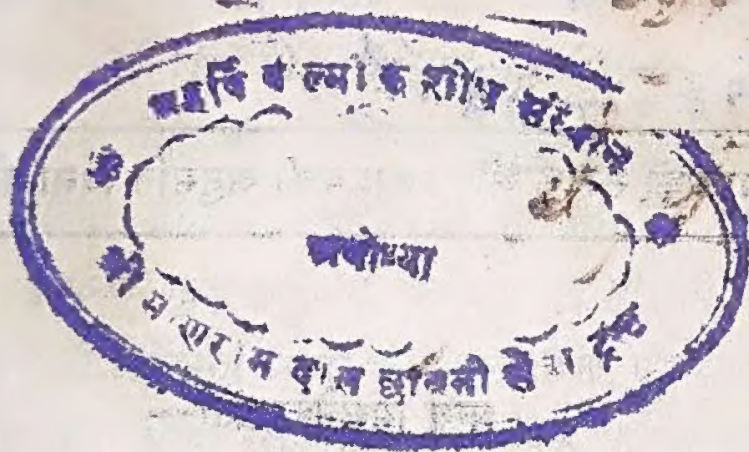 महर्षि वाल्मीकि शोध संस्थान
अयोध्या
श्री मणिराम दास छावनी सेवा ट्रस्ट